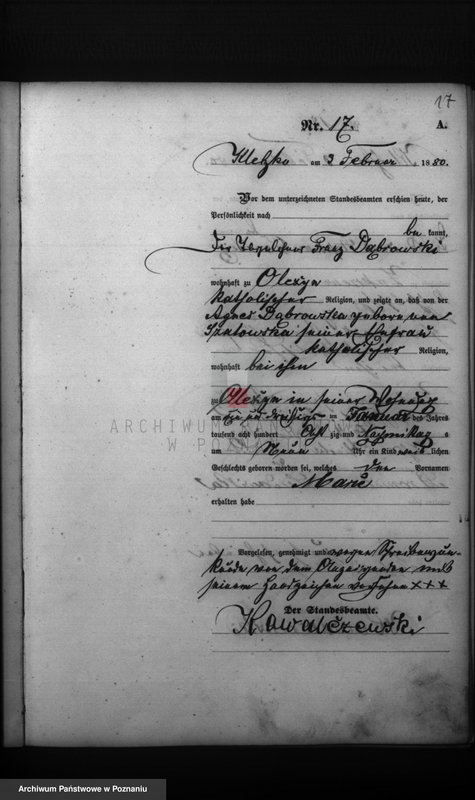 17
Nr. 17. A.
Kletzko am 3 Februar 1880.
Vor dem unterzeichneten Standesbeamten erschien heute, der
Persönlichkeit nach
be kannt,
der Tagelöhner Franz Dąbrowski
wohnhaft zu Olexyn
katholischer Religion, und zeigte an, daß von der
Agnes Dąbrowska geborenen
seiner Ehefrau
katholischer Religion,
wohnhaft bei ihm
zu Olexyn in seiner Wohnung
am ein und dreißigs ten Januar des Jahres
tausend acht hundert Acht zig und Nachmittag s
um Neun Uhr ein Kind weib lichen
Geschlechts geboren worden sei, welches den Vornamen
Marie
erhalten habe
Vorgelesen, genehmigt und wegen Schreibensun-
kunde von dem Anzeigenden mit
seinem Handzeichen versehen +++
Der Standesbeamte.
Kowalczewski
ARCHIWUM PAŃSTWOWE
W POZNANIU
Archiwum Państwowe w Poznaniu